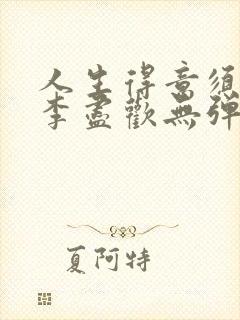 人生得意须
李盡歡無彈
夏阿特